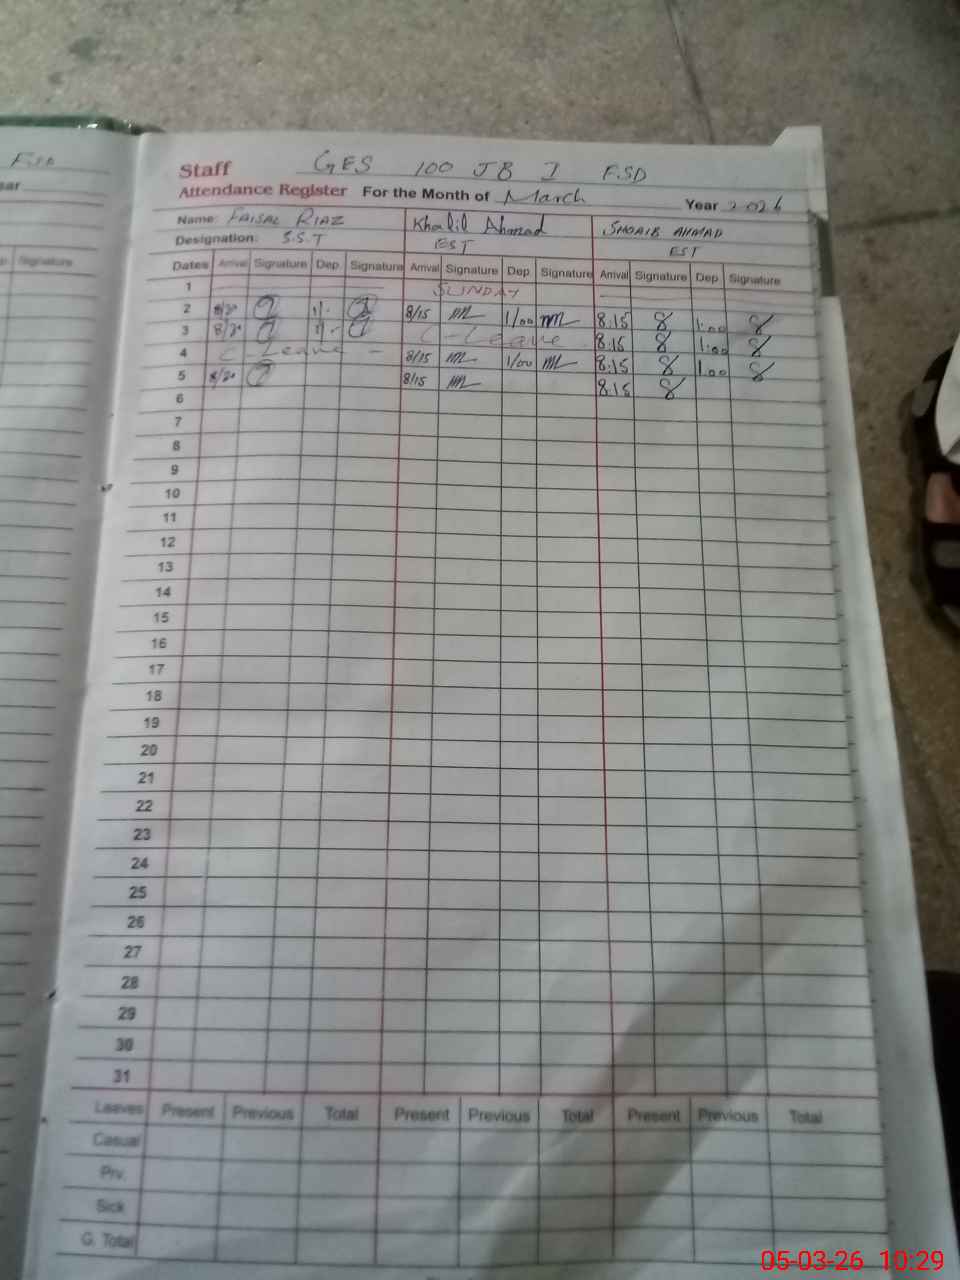 F.SD
ear
p. Signature
Staff GES 100 JB I F.SD
Attendance Register For the Month of March Year 2026
Name: FAISAL RIAZ Khalil Ahmad SHOAIB AHMAD
Designation: S.S.T EST EST
Dates Arrival Signature Dep. Signature Arrival Signature Dep. Signature Arrival Signature Dep. Signature
1 SUNDAY
2 8/20 1/- 8/15 1/00 8:15 1:00
3 8/20 1/- C-Leave 8:15 1:00
4 C-Leave 8/15 1/00 8:15 1:00
5 8/20 8/15 8:15
6
7
8
9
10
11
12
13
14
15
16
17
18
19
20
21
22
23
24
25
26
27
28
29
30
31
Leaves Present Previous Total Present Previous Total Present Previous Total
Casual
Prv.
Sick
G. Total
05-03-26 10:29